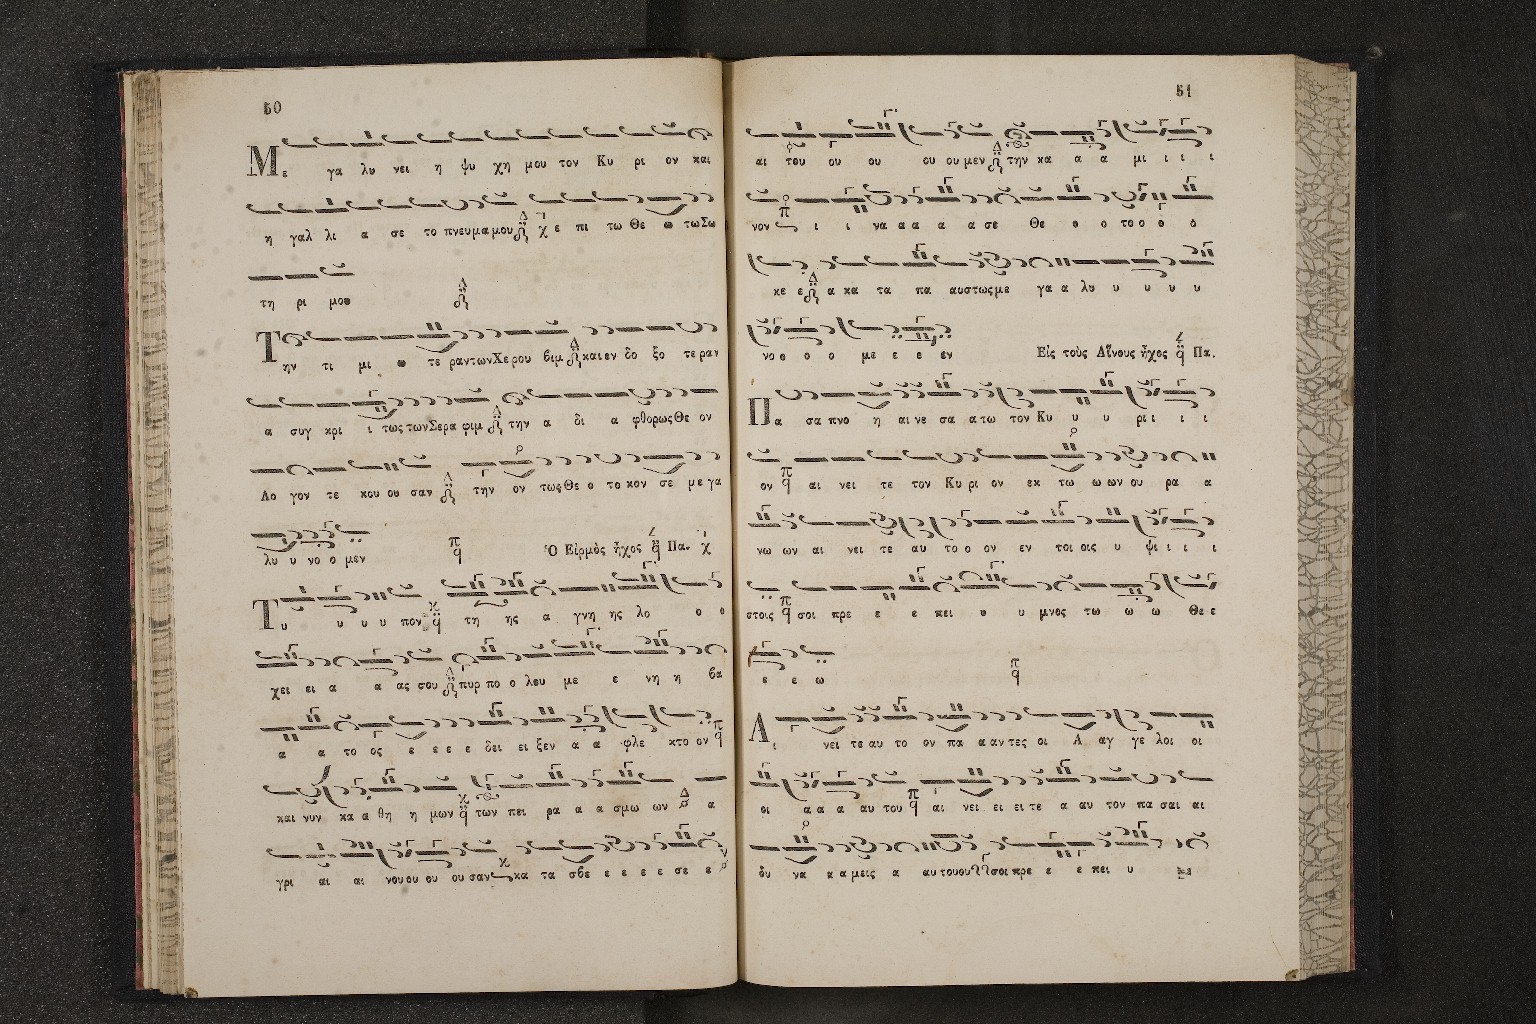 50
Με γα λυ νει η ψυ χη μου τον Κυ ρι ον και
η γαλ λι α σε το πνευμα μου ε πι τω Θε ω τω Σω
τη ρι μου
Την τι μι ω τε ραν των Χε ρου βιμ και εν δο ξο τε ραν
α συγ κρι ι τως των Σερα φιμ την α δι α φθορως Θε ον
Λο γον τε κου ου σαν την ον τως Θε ο το κον σε με γα
λυ υ νο ο μεν Ὁ Εἱρμὸς ἦχος Πα.
Τυ υ υ υ πον τη ης α γνη ης λο ο ο
χει ει α α ας σου πυρ πο ο λου με ε νη η βα
α α το ος ε ε ε ε δει ει ξεν α α φλε κτο ον
και νυν κα α θη η μων των πει ρα α α σμω ων α
γρι αι αι νου ου ου ου σαν κα τα σβε ε ε ε ε σε ε
51
αι του ου ου ου ου μεν την κα α α μι ι ι ι
νον ι ι να α α α α σε Θε ο ο το ο ο ο
κε ε α κα τα πα αυστως με γα α λυ υ υ υ υ
νο ο ο ο με ε ε εν Εἰς τοὺς Αἴνους ἦχος Πα.
Πα σα πνο η αι νε σα α τω τον Κυ υ υ ρι ι ι ι
ον αι νει τε τον Κυ ρι ον εκ τω ω ων ου ρα α
νω ων αι νει τε αυ το ο ον εν τοι οις υ ψι ι ι ι
στοις σοι πρε ε ε πει υ υ μνος τω ω ω Θε ε
ε ε ω
Αι νει τε αυ το ον πα α αν τες οι Α αγ γε λοι οι
οι α α α αυ του αι νει ει ει τε α αυ τον πα σαι αι
δυ να κ α μεις α αυ του ου σοι πρε ε ε πει υ